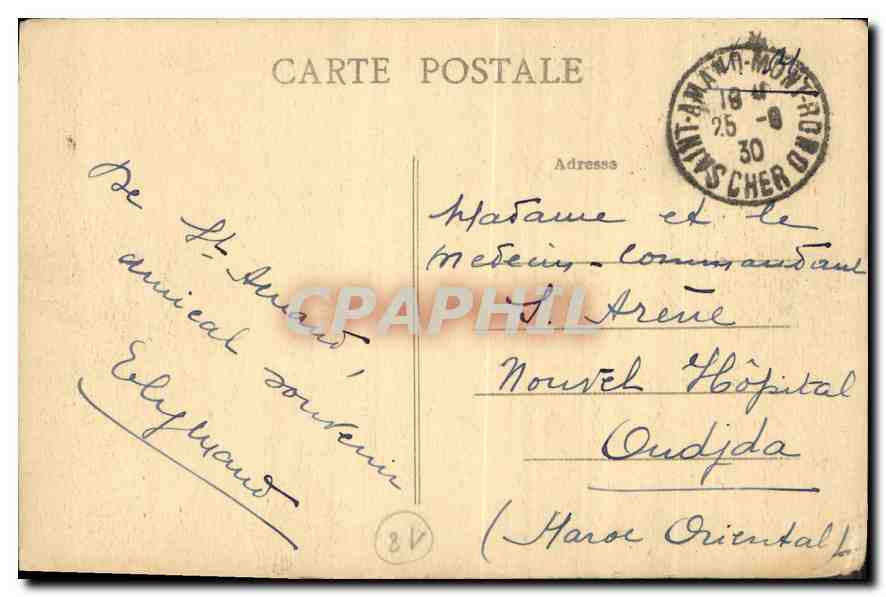 CARTE POSTALE
SAINT-AMAND-MONT-ROND
CHER
25
30
Adresse
De St Amand,
amical souvenir
Madame et le
Medecin-Commandant
S. Arène
Nouvel Hôpital
Oudjda
(Maroc Oriental)
CPAPHIL
8V